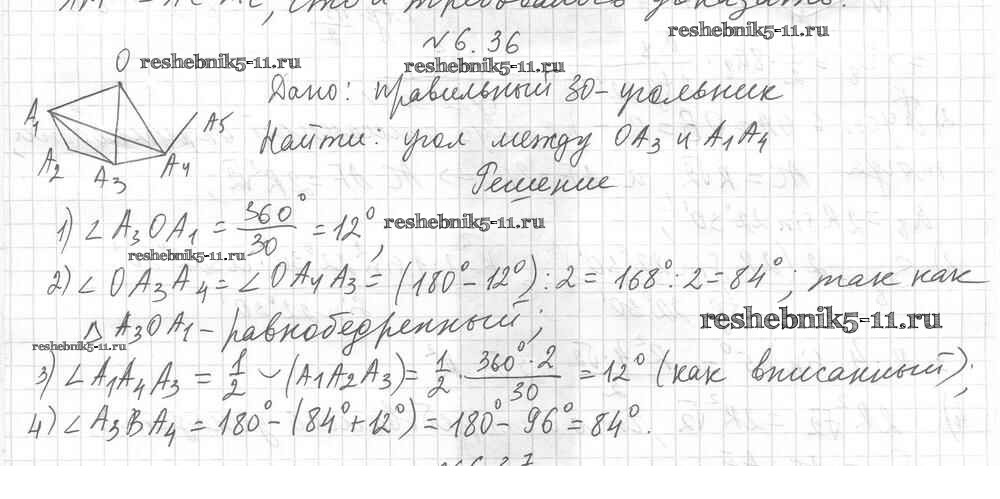 что и требовалось доказать.
№ 6.36
reshebnik5-11.ru
reshebnik5-11.ru
reshebnik5-11.ru
O
A1
A2
A3
A4
A5
Дано: правильный 30-угольник
Найти: угол между OA3 и A1A4
Решение
1) ∠A3OA1 = 360°/30 = 12°,
reshebnik5-11.ru
reshebnik5-11.ru
2) ∠OA3A4 = ∠OA4A3 = (180° - 12°) : 2 = 168° : 2 = 84°; так как
△A3OA1 - равнобедренный;
reshebnik5-11.ru
reshebnik5-11.ru
3) ∠A1A4A3 = 1/2 ◡(A1A2A3) = 1/2 · 360°·2/30 = 12° (как вписанный);
4) ∠A3BA4 = 180° - (84° + 12°) = 180° - 96° = 84°.